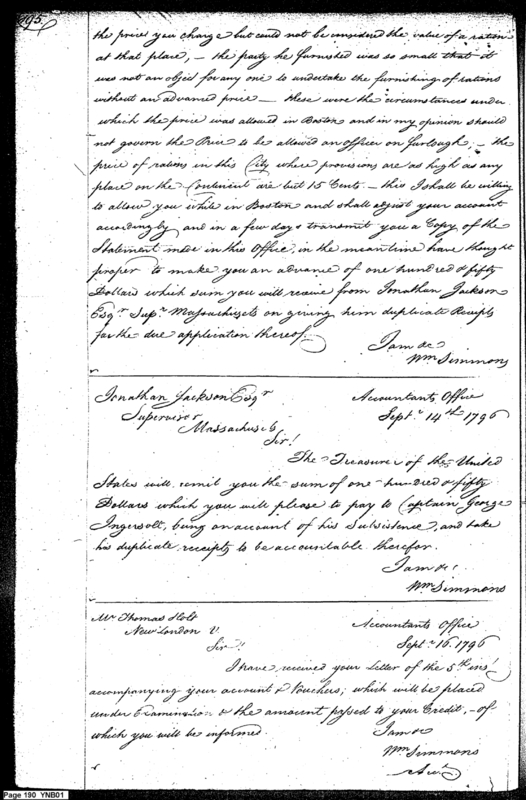 195
the prices you charge but could not be considered the value of a ration
at that place, – the party he furnished was so small that it
was not an object for any one to undertake the furnishing of rations
without an advanced price – these were the circumstances under
which the price was allowed in Boston and in my opinion should
not govern the Price to be allowed an officer on Furlough; – the
price of rations in this City where provisions are as high as any
place on the Continent are but 15 Cents. – this I shall be willing
to allow you while in Boston and shall adjust your account
accordingly and in a few days transmit you a Copy of the
Statement made in this Office, in the meantime have thought
proper to make you an advance of one hundred & fifty
Dollars which sum you will receive from Jonathan Jackson
Esqr. Supr. Massachusets on giving him duplicate Receipts
for the due application thereof.
I am &c
Wm Simmons
Jonathan Jackson Esqr
Accountants Office
Supervisor
Septr. 14th 1796
Massachusets
Sir!
The Treasurer of the United
States will remit you the sum of one hundred & fifty
Dollars which you will please to pay to Captain George
Ingersoll, being on account of his Subsistence, and take
his duplicate receipts to be accountable therefor.
I am &c.
Wm Simmons
Mr Thomas Holt
Accountants Office
New London
Septr. 16. 1796
Sir!
I have received your Letter of the 5th inst
accompanying your account & Vouchers; which will be placed
under Examination & the amount passed to your Credit, – of
which you will be informed.
I am &c
Wm Simmons
Acct.
Page 190 YNB01